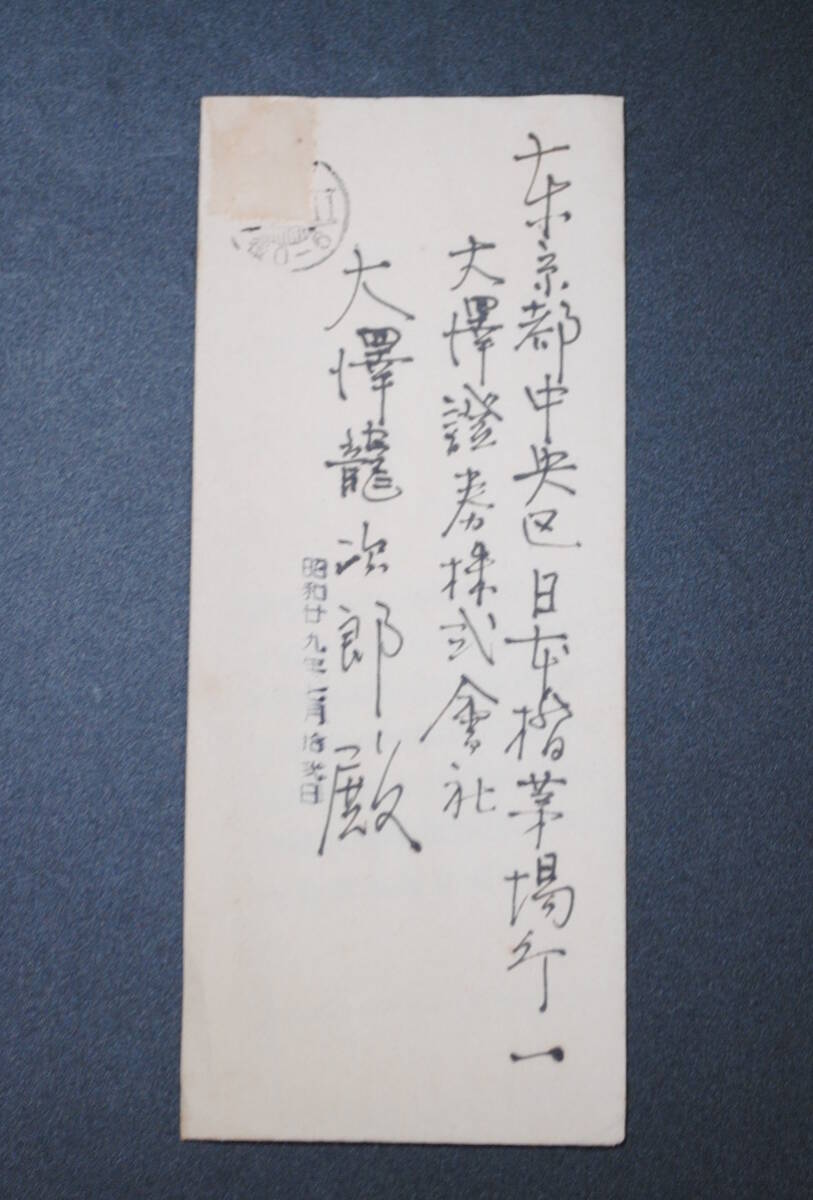 東京都中央区日本橋茅場町一
大澤證券株式會社
大澤龍次郎殿
昭和廿九年 月 日